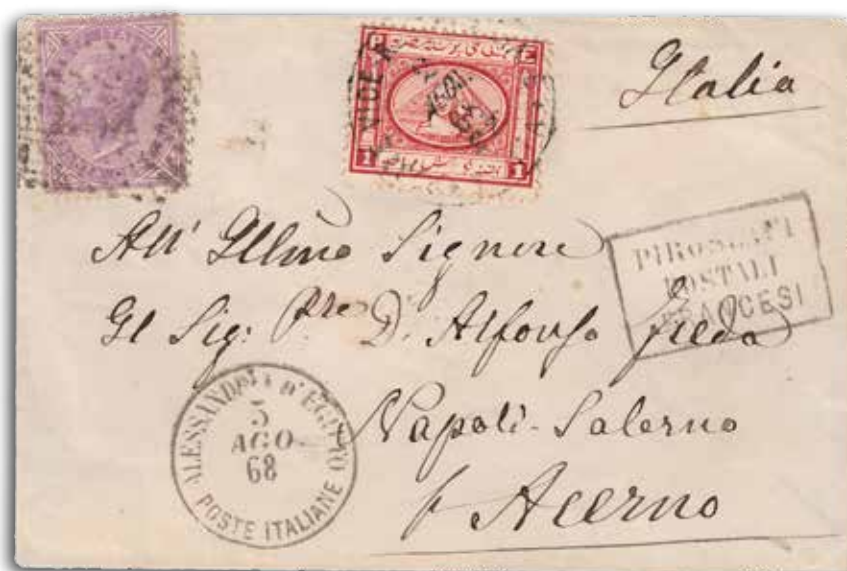 Italia
1 1
PIROSCAFI
POSTALI
FRANCESI
All' Illmo Signore
Il Sig: Pre D. Alfonso
Napoli-Salerno
p Acerno
ALESSANDRIA D'EGITTO
5
AGO
68
POSTE ITALIANE